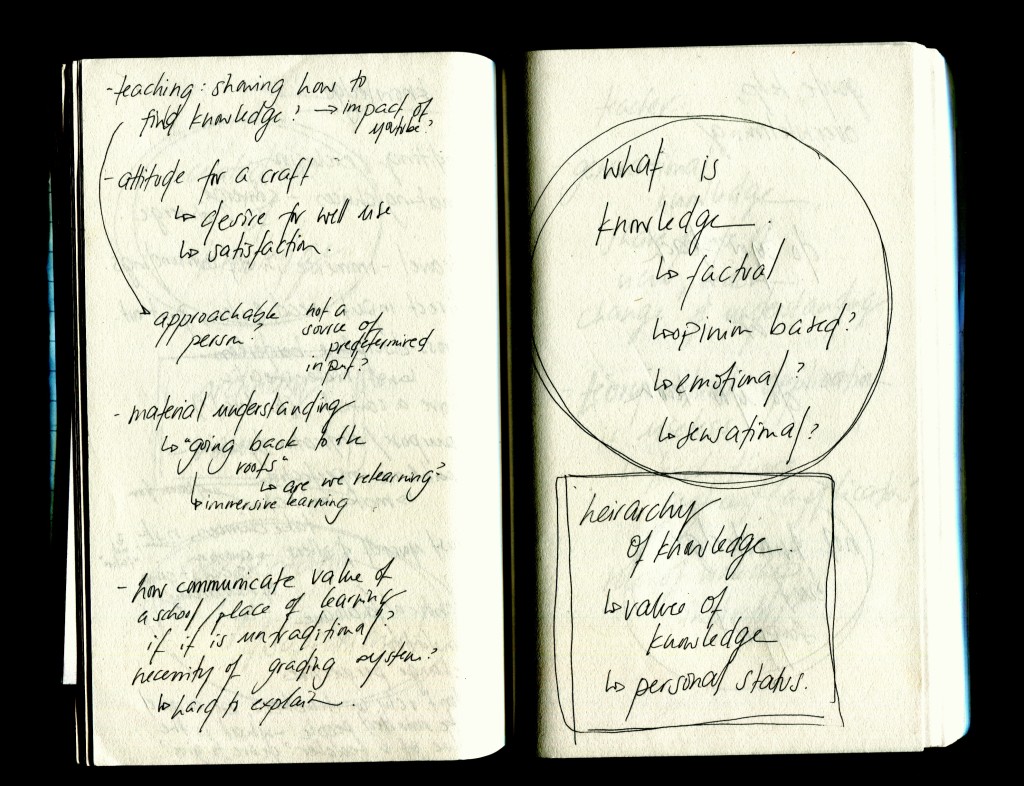 - teaching: showing how to
find knowledge? → impact of
youtube?
- attitude for a craft
↳ desire for well use
↳ satisfaction.
approachable
person?
not a
source of
predetermined
input?
- material understanding
↳ "going back to the
roots"
↳ are we relearning?
↳ immersive learning
- how communicate value of
a school/place of learning
if it is untraditional?
necessity of grading system?
↳ hard to explain.
what is
knowledge.
↳ factual
↳ opinion based?
↳ emotional?
↳ sensational?
heirarchy
of knowledge.
↳ value of
knowledge
↳ personal status.